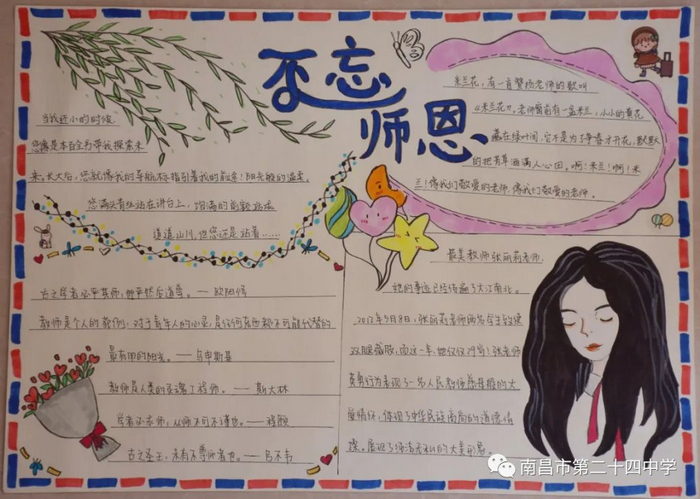 不忘师恩
当我还小的时候
您像是本百全书带我探索未
来,长大后,您就像我的导航标指引着我的前途!阳光般的温柔
您满头青丝站在讲台上,
远道山川,但您还是站着……
米兰花,有一首赞扬老师的歌叫
《米兰花》。老师窗前有一盆米兰,小小的黄花
藏在绿叶间,它不是为了争春才开花,默默
的把芳草洒满人心田。啊!米兰!啊!米
兰!像我们敬爱的老师,像我们敬爱的老师。
古之学者必严其师,师严然后道尊。——欧阳修
教师是个人的教例:对于青年人的心灵,是任何东西都不可能代替的
最有用的阳光。——乌申斯基
教师是人类的灵魂工程师。——斯大林
学者必求师,从师不可不谨也。——程颐
古之圣王,未有不尊师者也。——吕不韦
最美教师张丽莉老师.
她的事迹已经传遍了大江南北。
2012年5月8日,张丽莉老师因为学生致使
双腿截肢,而这一年,她仅仅29岁!张老师
英勇行为表现了一名人民教师崇高般的大
爱情怀,体现了中华民族高尚的道德情
操。展现了纯洁无私的大美形象。
南昌市第二十四中学